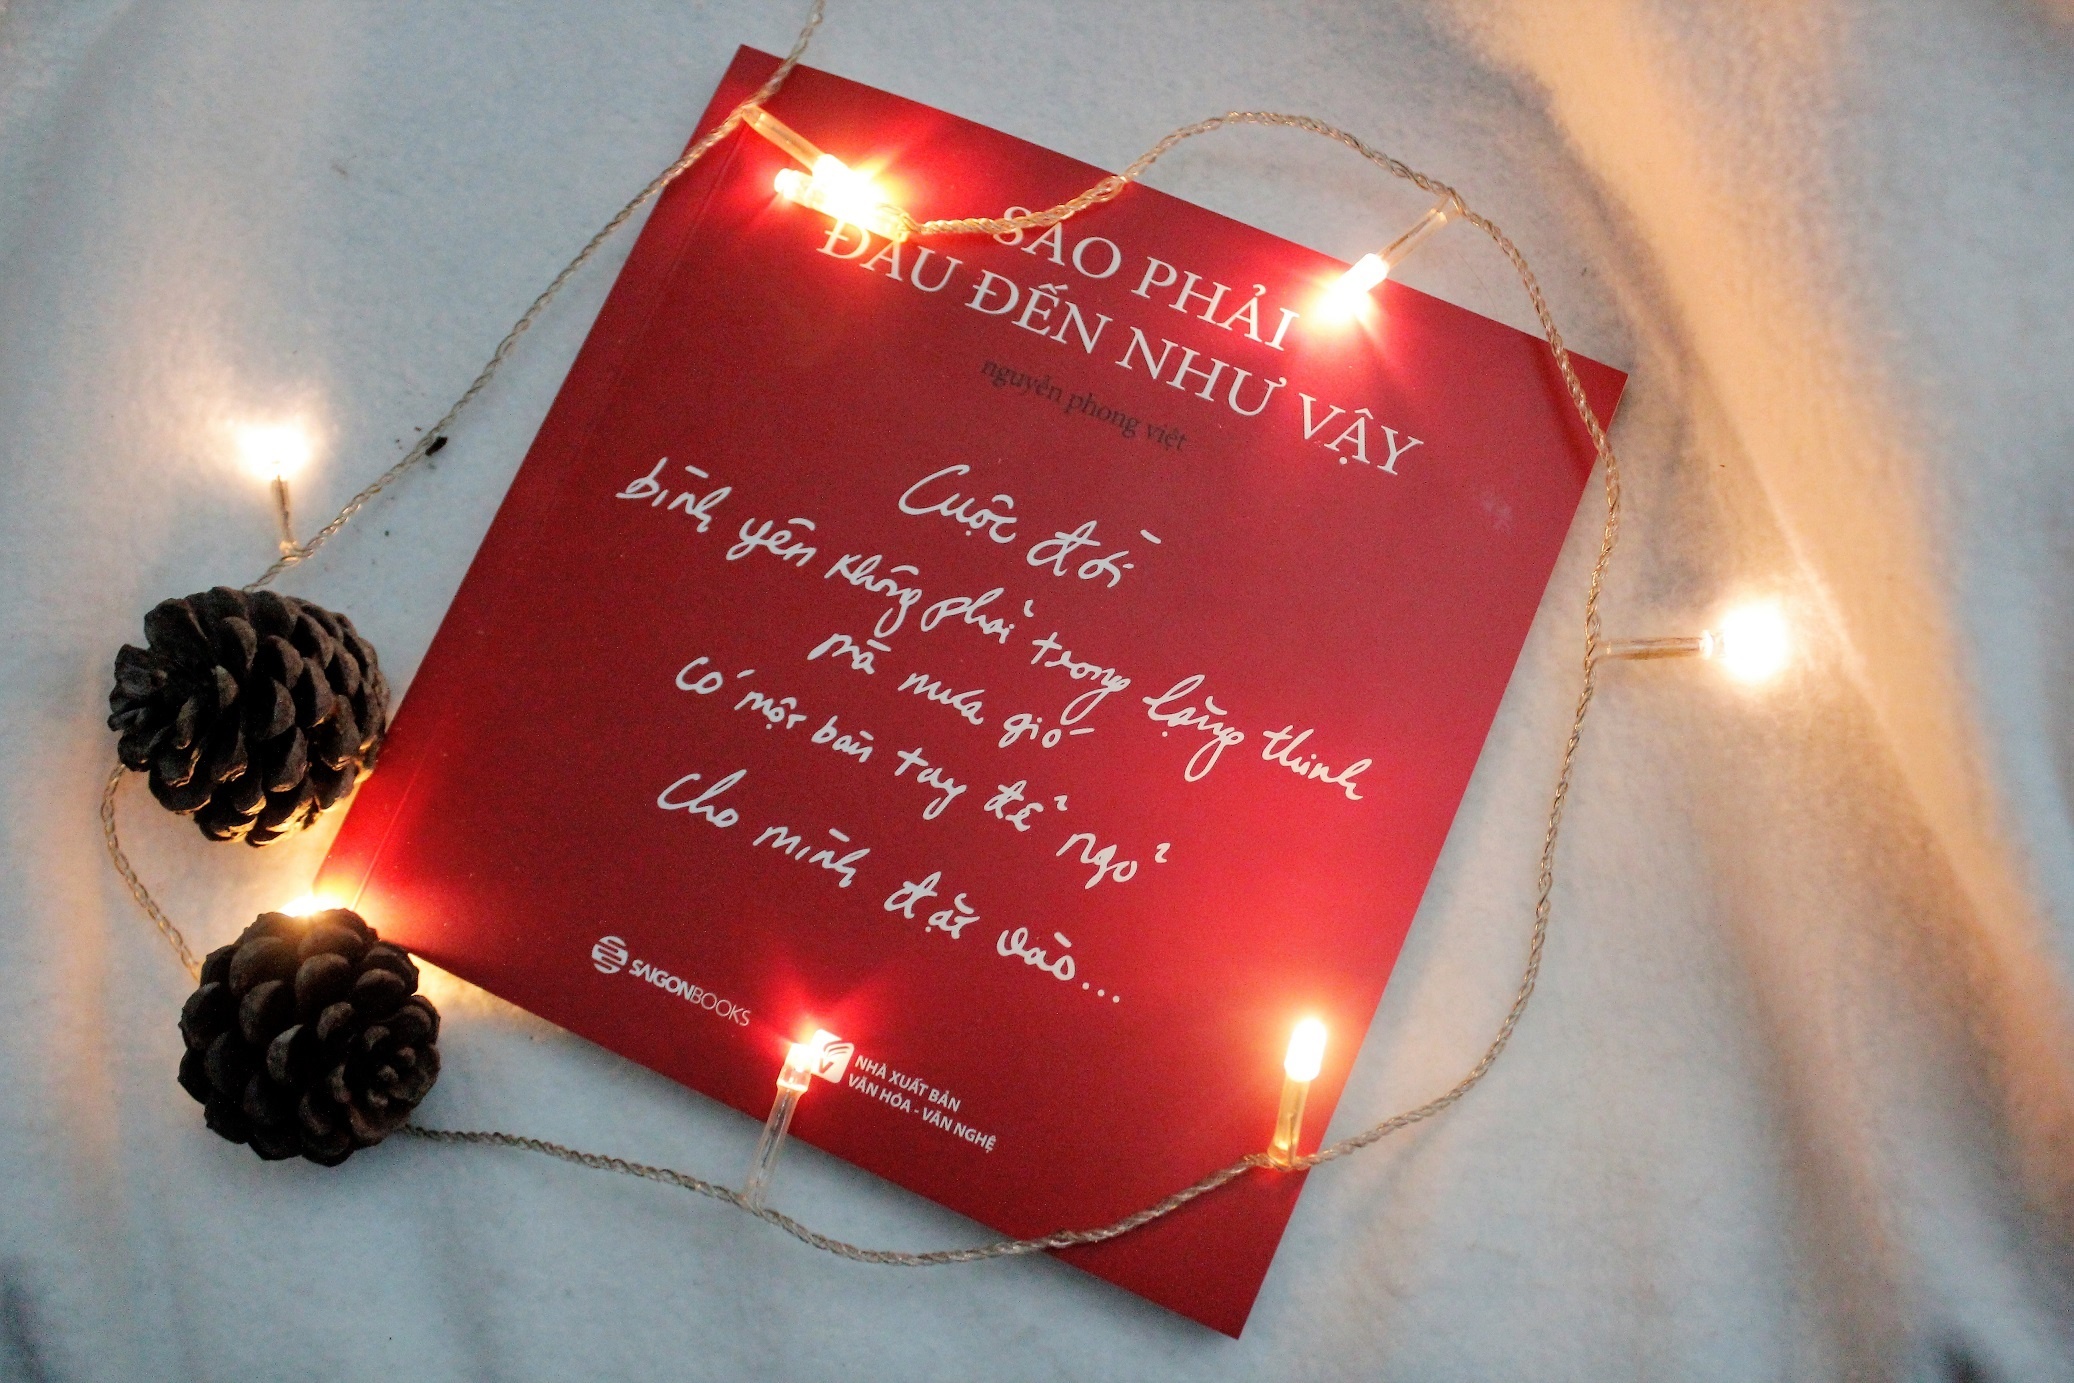 SAO PHẢI
ĐAU ĐẾN NHƯ VẬY
nguyễn phong việt
Cuộc đời
bình yên không phải trong lặng thinh
mà mưa gió
có một bàn tay để ngỏ
cho mình đặt vào...
SAIGONBOOKS
NHÀ XUẤT BẢN
VĂN HÓA - VĂN NGHỆ